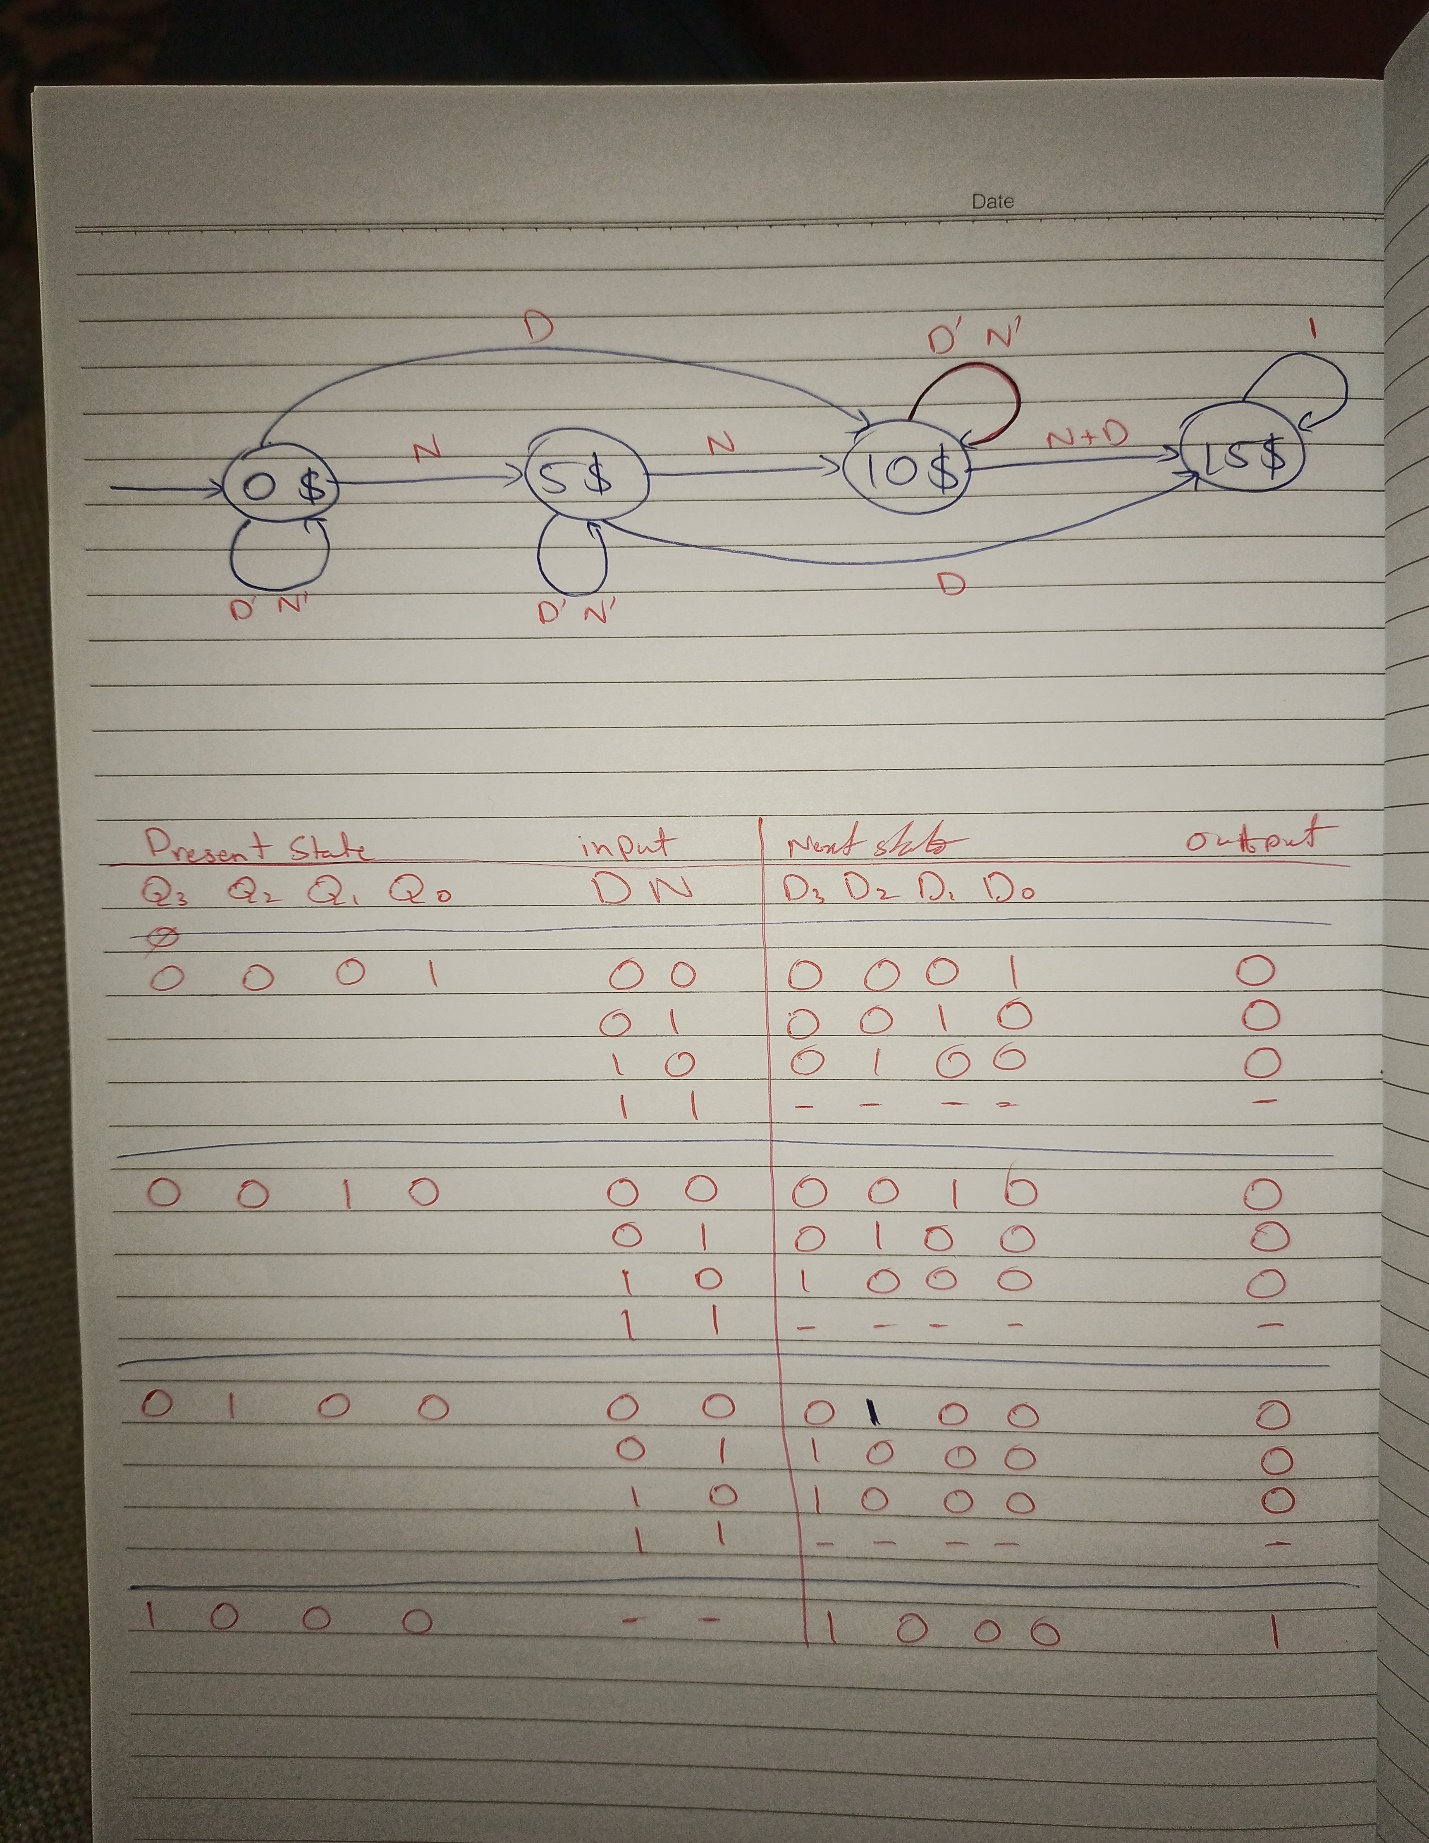 Date
D
D' N'
1
N
N
N+D
0 $
5 $
10 $
15 $
D
D' N'
D' N'
Present State input Next state output
Q3 Q2 Q1 Q0 D N D3 D2 D1 D0
0 0 0 1 0 0 0 0 0 1 0
0 1 0 0 1 0 0
1 0 0 1 0 0 0
1 1 - - - - -
0 0 1 0 0 0 0 0 1 0 0
0 1 0 1 0 0 0
1 0 1 0 0 0 0
1 1 - - - - -
0 1 0 0 0 0 0 1 0 0 0
0 1 1 0 0 0 0
1 0 1 0 0 0 0
1 1 - - - - -
1 0 0 0 - - 1 0 0 0 1